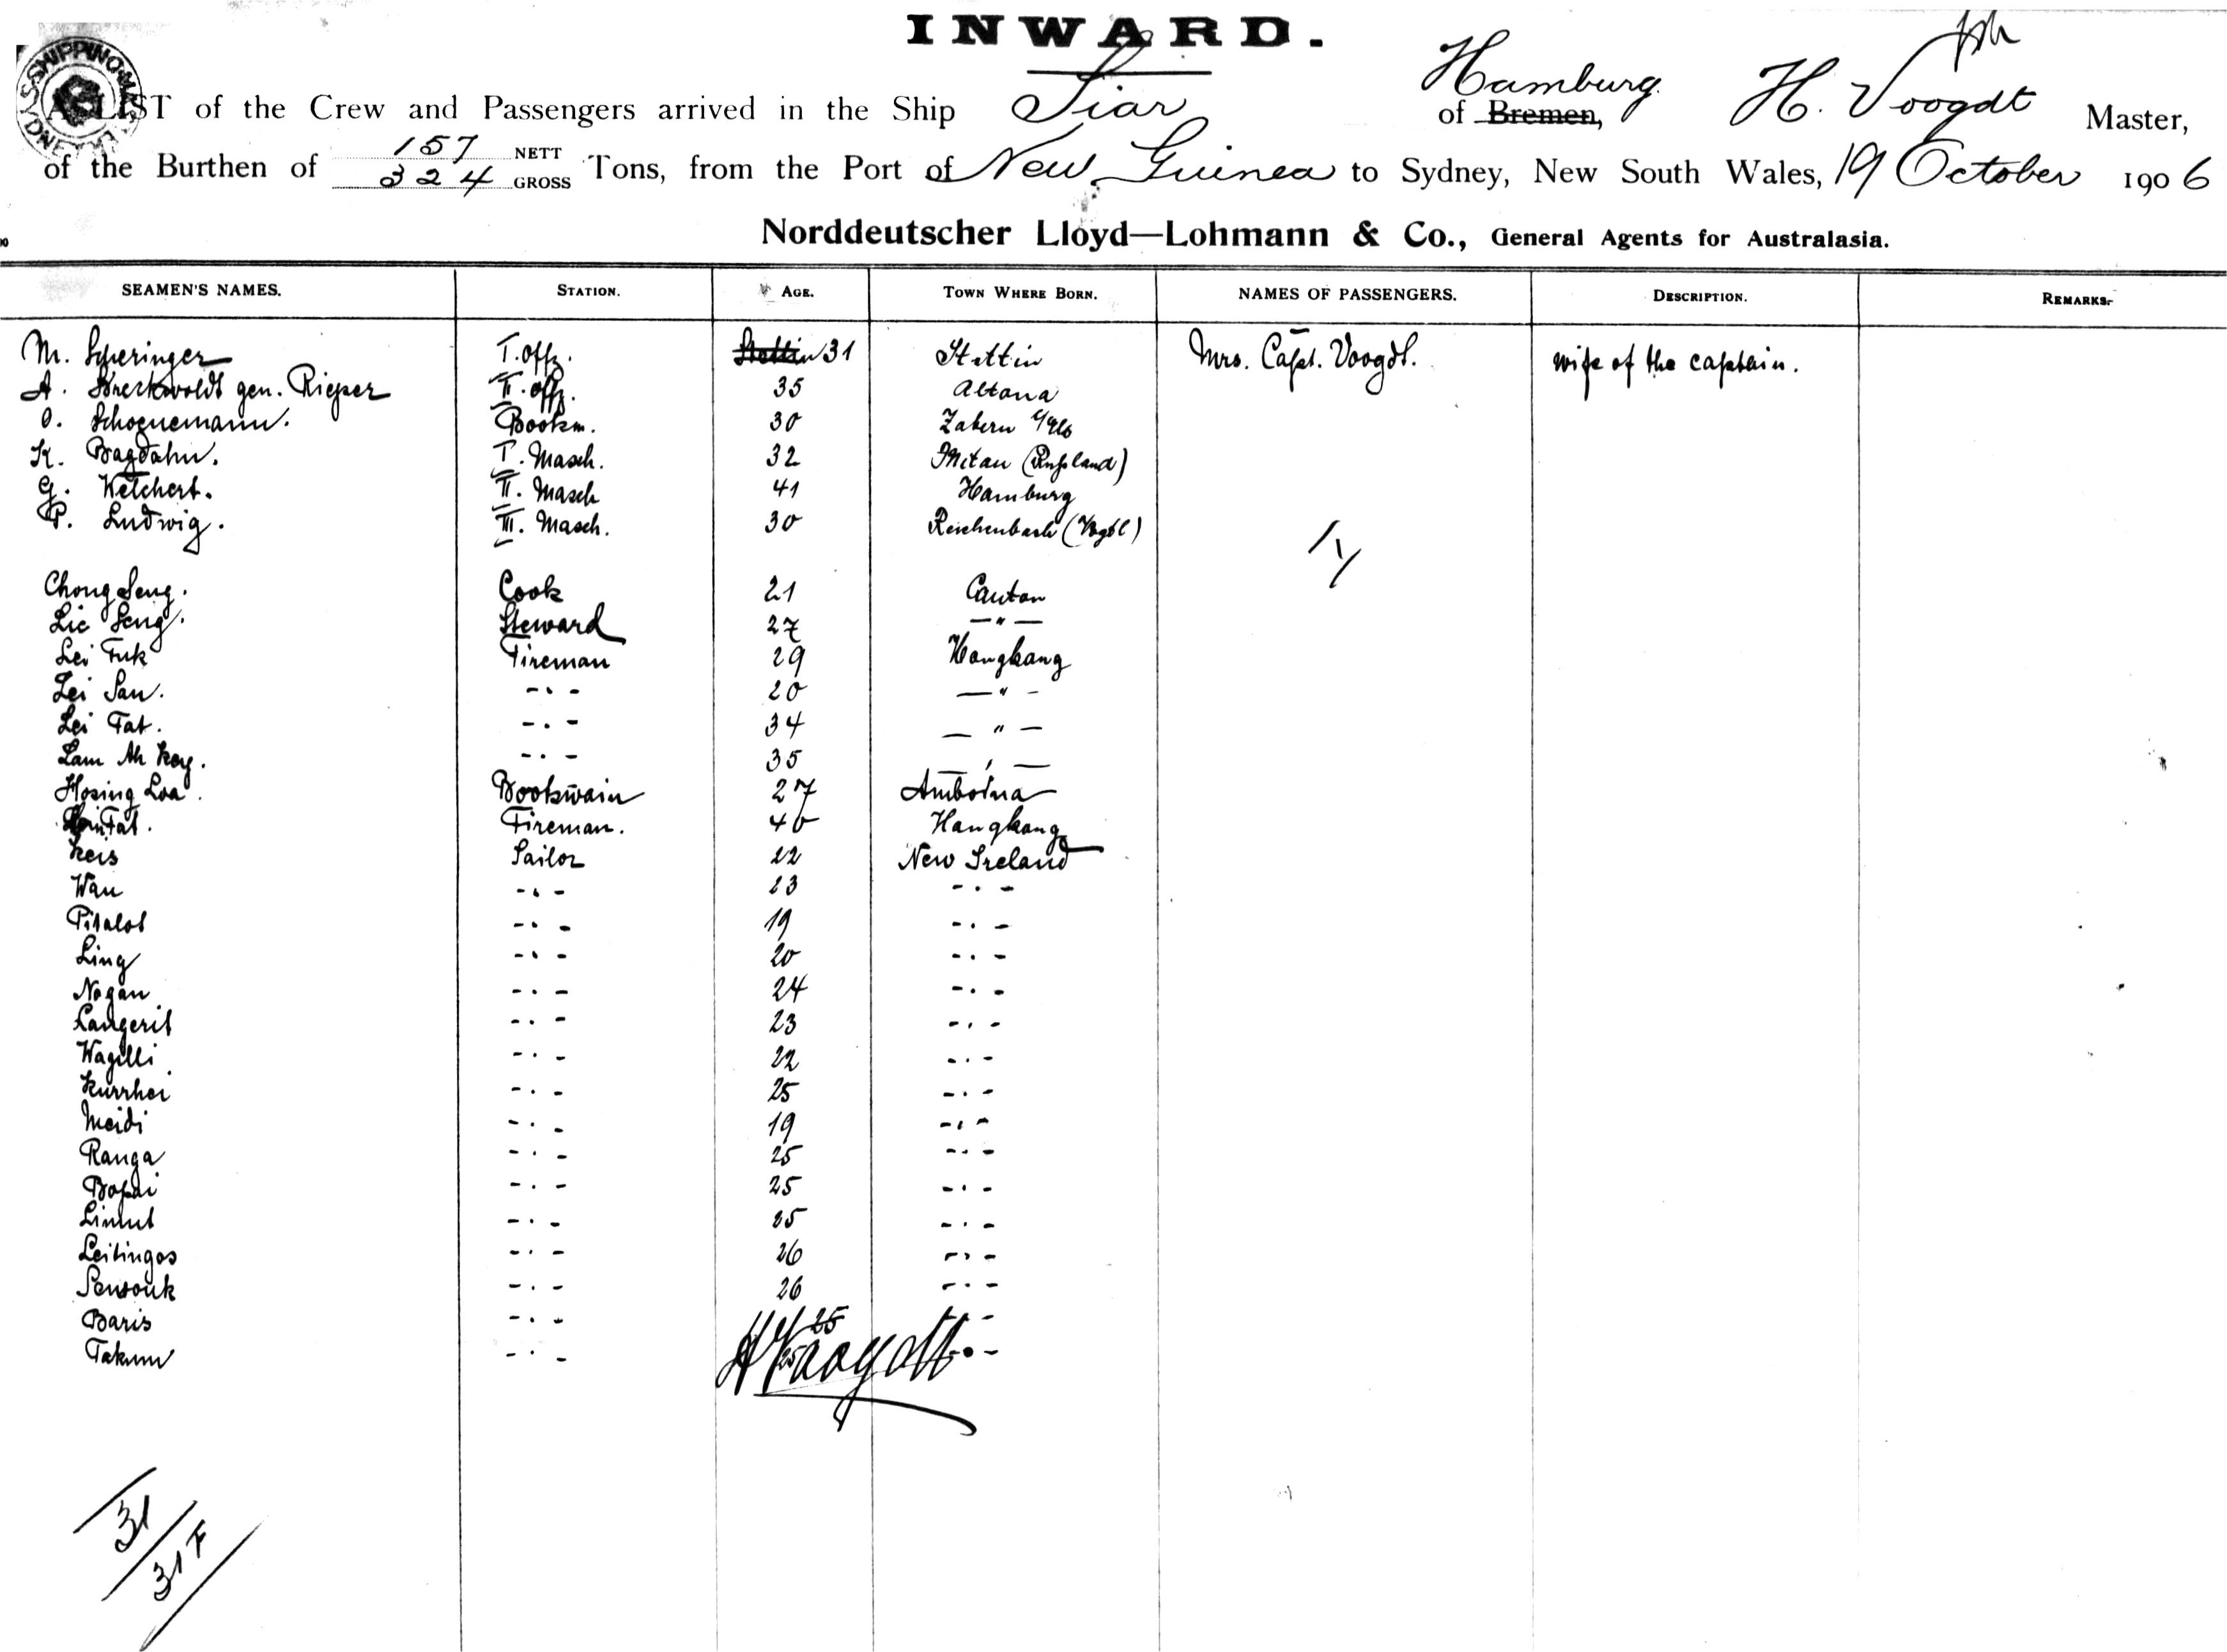 INWARD.
A LIST of the Crew and Passengers arrived in the Ship Siar of Bremen, Hamburg. H. Voogdt Master,
of the Burthen of 157 NETT 324 GROSS Tons, from the Port of New Guinea to Sydney, New South Wales, 19 October 1906
Norddeutscher Lloyd—Lohmann & Co., General Agents for Australasia.
SEAMEN'S NAMES. STATION. AGE. TOWN WHERE BORN. NAMES OF PASSENGERS. DESCRIPTION. REMARKS.
M. Scheringer I. Offz. 31 Stettin Mrs. Capt. Voogdt. wife of the captain.
A. gen. Rieper II. Offz. 35 Altona
O. Schoenemann. Bootsm. 30 Zabern
K. Bagdahn. I. Masch. 32 Mitau (Rußland)
G. Ketchert. II. Masch 41 Hamburg
P. Ludwig. III. Masch. 30 Reichenbach (Vogtl)
Chong Seng. Cook 21 Canton
Lie Seng. Steward 27 — " —
Lei Fuk Fireman 29 Hongkong
Lei San. - . - 20 — " -
Lei Fat. - . - 34 — " —
Lam Ah - . - 35 — ' —
Hosing Loa. 27 Amboina
Fat. Fireman. 40 Hongkong
Keis Sailor 22 New Ireland
Wan - . - 23 - . -
Pitalot - . - 19 - . -
Ling - . - 20 - . -
Nogan - . - 24 - . -
Langerit - . - 23 - . -
Wagilli - . - 22 - . -
Kurrhei - . - 25 - . -
Meidi - . - 19 - . -
Ranga - . - 25 - . -
Bopai - . - 25 - . -
Limut - . - 25 - . -
Leitingas - . - 26 - . -
Sensouk - . - 26 - . -
Baris - . - 25 - -
Takum - . - 25 - . -
H Voogdt
31
31 F